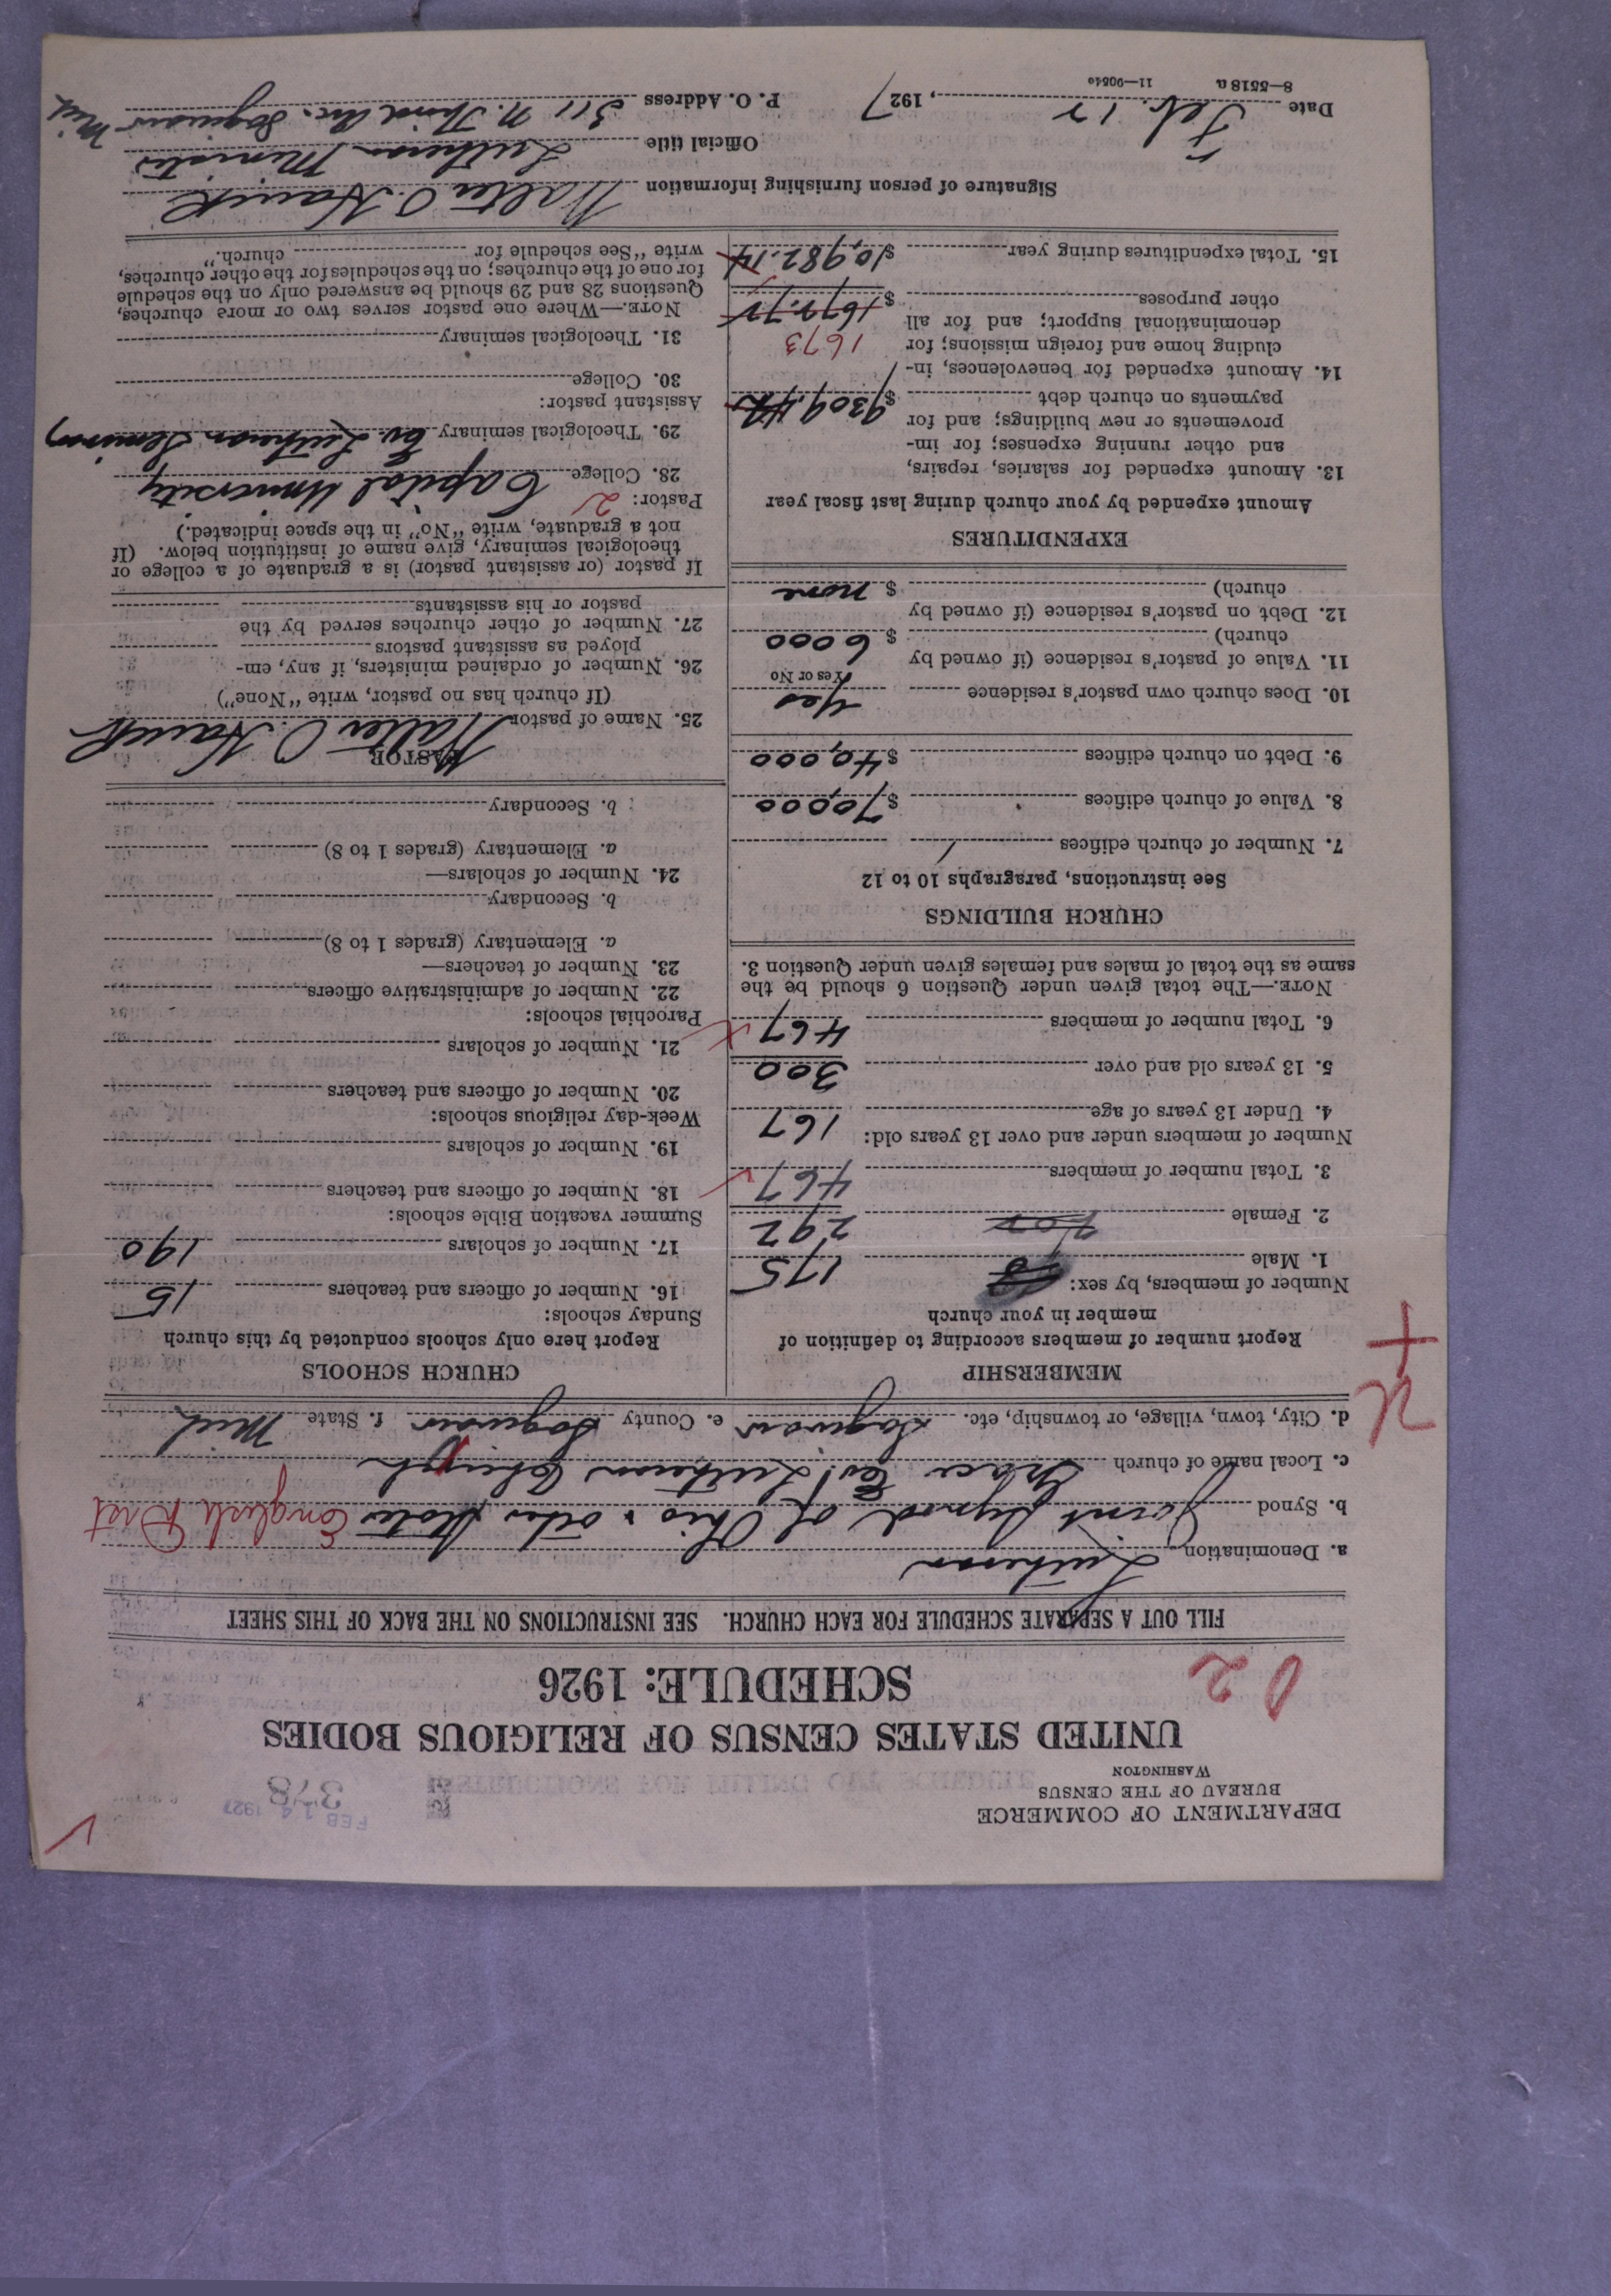 DEPARTMENT OF COMMERCE
BUREAU OF THE CENSUS
WASHINGTON
FEB 14 1927
378
UNITED STATES CENSUS OF RELIGIOUS BODIES
SCHEDULE: 1926
02
FILL OUT A SEPARATE SCHEDULE FOR EACH CHURCH. SEE INSTRUCTIONS ON THE BACK OF THIS SHEET
a. Denomination Lutheran
b. Synod Joint Synod of Ohio & other States English Dist
c. Local name of church Grace Ev. Lutheran Church
d. City, town, village, or township, etc. Saginaw e. County Saginaw f. State Mich
MEMBERSHIP
Report number of members according to definition of
member in your church
Number of members, by sex:
1. Male 175
2. Female 292
3. Total number of members 467
Number of members under and over 13 years old:
4. Under 13 years of age 167
5. 13 years old and over 300
6. Total number of members 467
NOTE.—The total given under Question 6 should be the
same as the total of males and females given under Question 3.
CHURCH BUILDINGS
See instructions, paragraphs 10 to 12
7. Number of church edifices 1
8. Value of church edifices $ 70,000
9. Debt on church edifices $ 40,000
10. Does church own pastor's residence yes
Yes or No
11. Value of pastor's residence (if owned by
church) $ 6000
12. Debt on pastor's residence (if owned by
church) $ none
EXPENDITURES
Amount expended by your church during last fiscal year
13. Amount expended for salaries, repairs,
and other running expenses; for im-
provements or new buildings; and for
payments on church debt $ 9309.42
14. Amount expended for benevolences, in-
cluding home and foreign missions; for 1673
denominational support; and for all
other purposes $ 1672.72
15. Total expenditures during year $ 10,982.14
CHURCH SCHOOLS
Report here only schools conducted by this church
Sunday schools:
16. Number of officers and teachers 15
17. Number of scholars 190
Summer vacation Bible schools:
18. Number of officers and teachers
19. Number of scholars
Week-day religious schools:
20. Number of officers and teachers
21. Number of scholars
Parochial schools:
22. Number of administrative officers
23. Number of teachers—
a. Elementary (grades 1 to 8)
b. Secondary
24. Number of scholars—
a. Elementary (grades 1 to 8)
b. Secondary
PASTOR
25. Name of pastor Walter O. Hauck
(If church has no pastor, write "None")
26. Number of ordained ministers, if any, em-
ployed as assistant pastors
27. Number of other churches served by the
pastor or his assistants
If pastor (or assistant pastor) is a graduate of a college or
theological seminary, give name of institution below. (If
not a graduate, write "No" in the space indicated.)
Pastor: 2
28. College Capital University
29. Theological seminary Ev. Lutheran Seminary
Assistant pastor:
30. College
31. Theological seminary
NOTE.—Where one pastor serves two or more churches,
Questions 28 and 29 should be answered only on the schedule
for one of the churches; on the schedules for the other churches,
write "See schedule for church."
Signature of person furnishing information Walter O. Hauck
Official title Lutheran Minister
Date Feb. 12, 1927 P. O. Address 311 N. Third Ave. Saginaw Mich
8—5518a 11—9054a